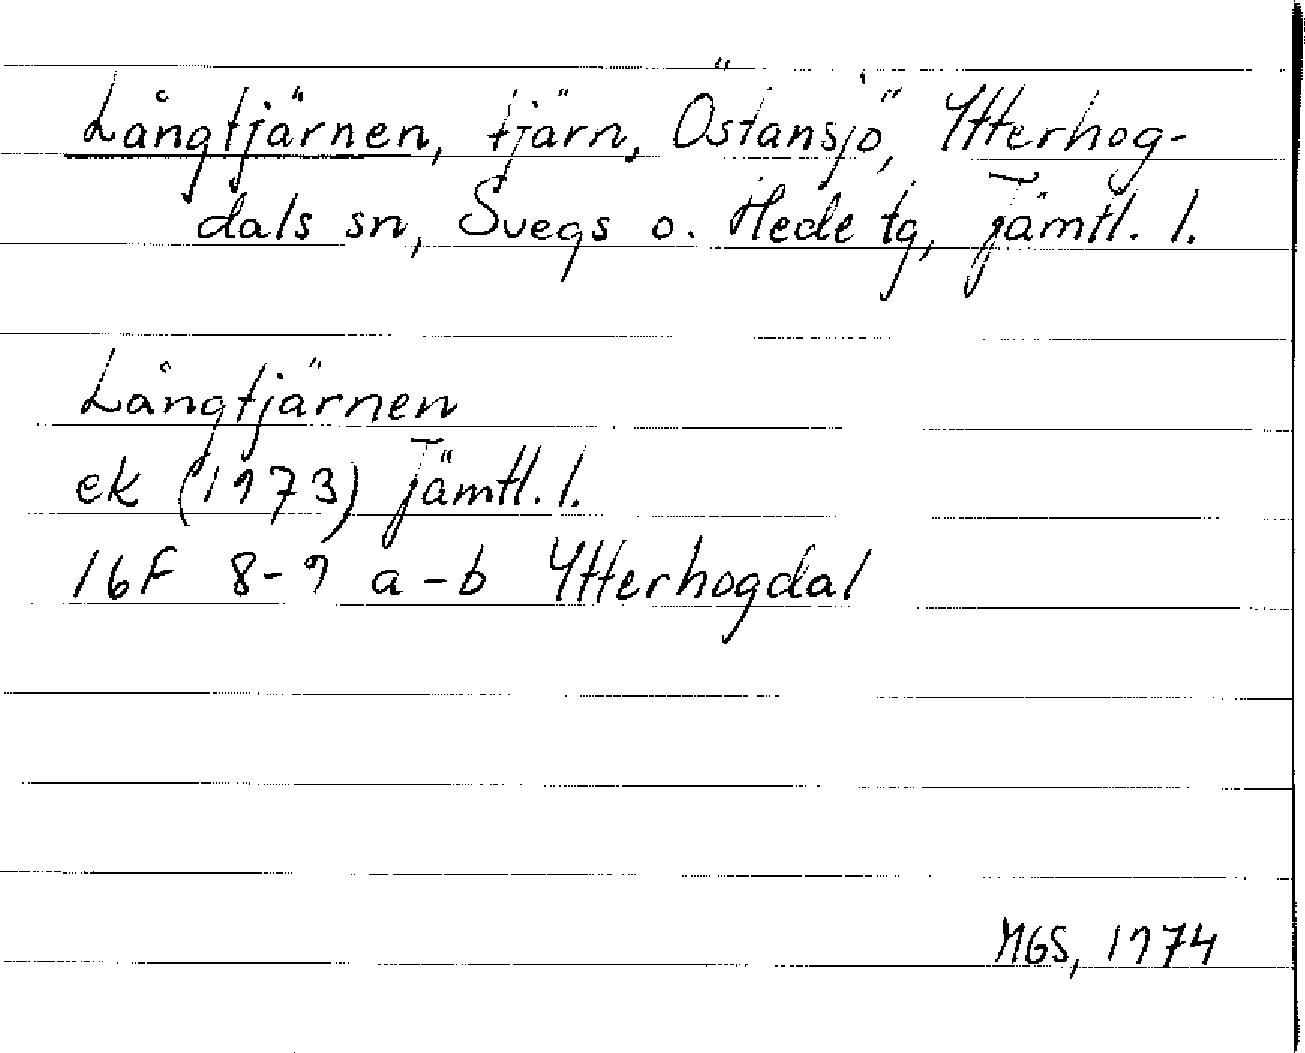 Långtjärnen, tjärn, Östansjö, Ytterhog-
dals sn, Svegs o. Hede tg, Jämtl. l.
Långtjärnen
ek (1973) Jämtl. l.
16F 8-9 a-b Ytterhogdal
MGS, 1974